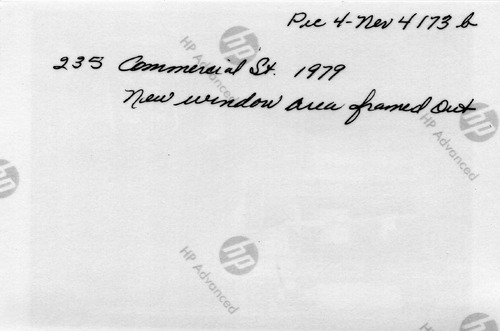 Pic 4-Nev 4173 b
235 Commercial St. 1979
New window area framed out
hp
HP Advanced
hp
HP Advanced
hp
hp
HP Advanced
hp